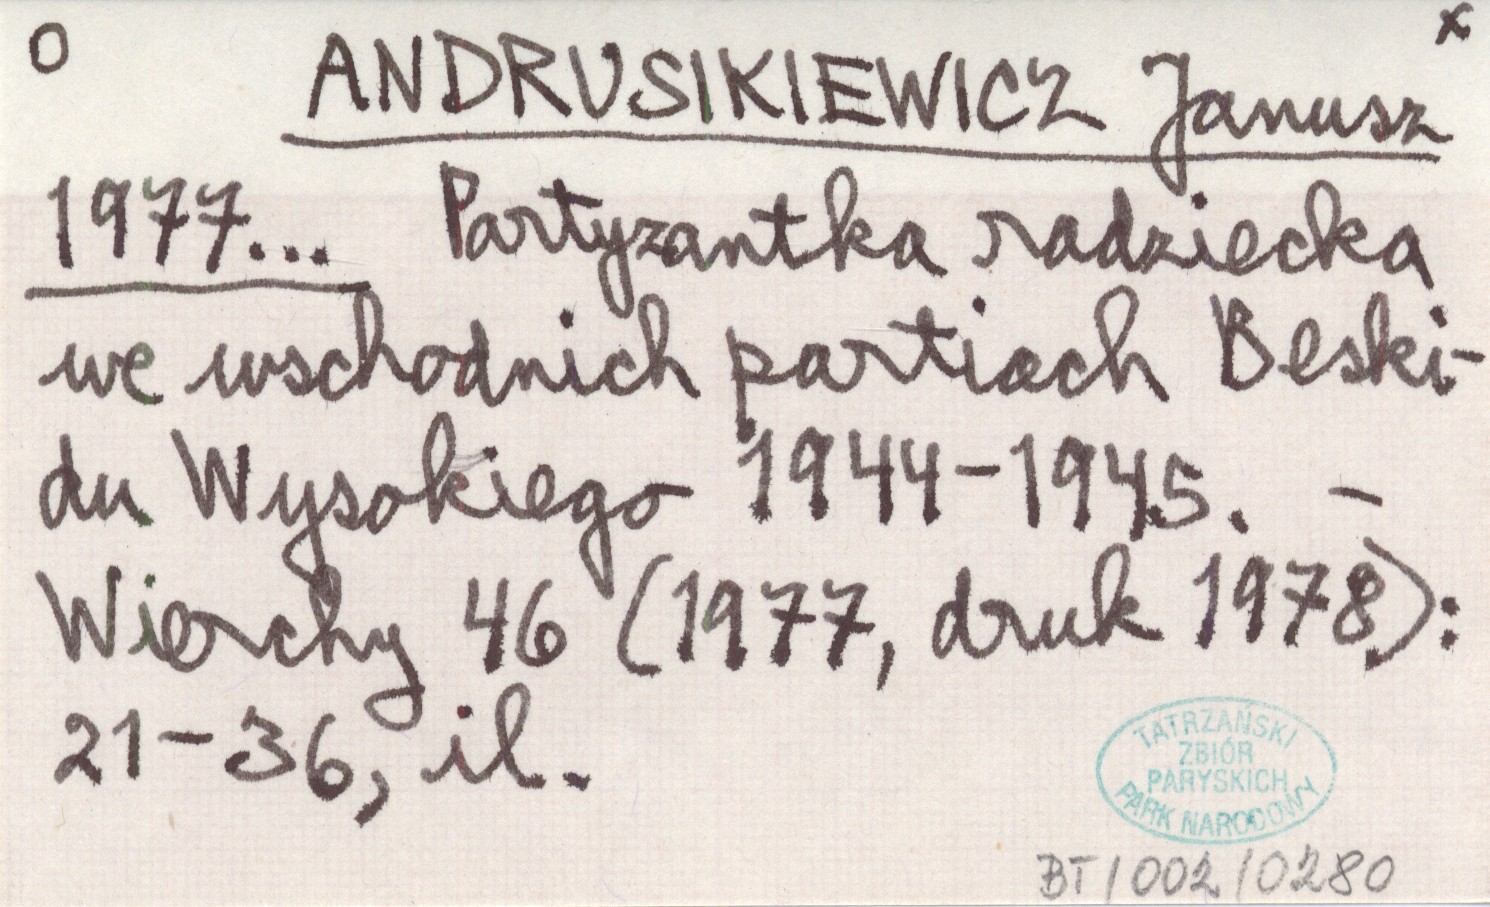 O x
ANDRUSIKIEWICZ Janusz
1977... Partyzantka radziecka
we wschodnich partiach Beski-
du Wysokiego 1944-1945. –
Wierchy 46 (1977, druk 1978):
21-36, il.
TATRZAŃSKI
ZBIÓR
PARYSKICH
PARK NARODOWY
BT/002/0280